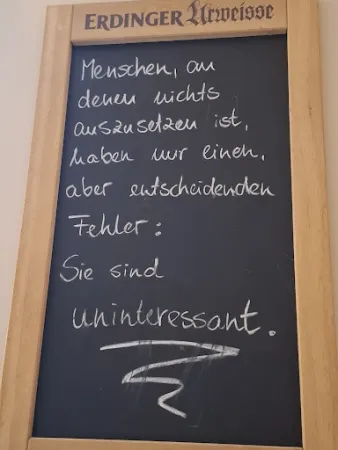 ERDINGER Urweisse
Menschen, an
denen nichts
auszusetzen ist,
haben nur einen,
aber entscheidenden
Fehler:
Sie sind
uninteressant.